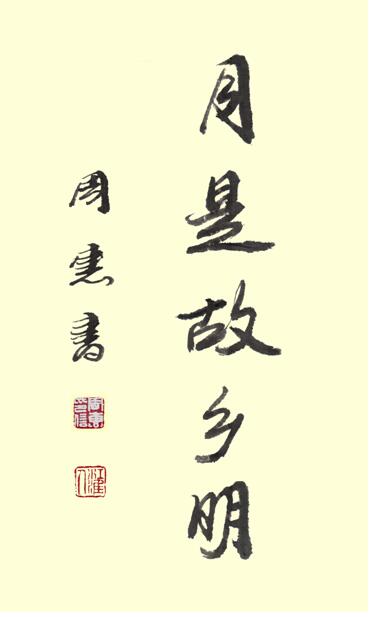 月是故乡明
周惠书